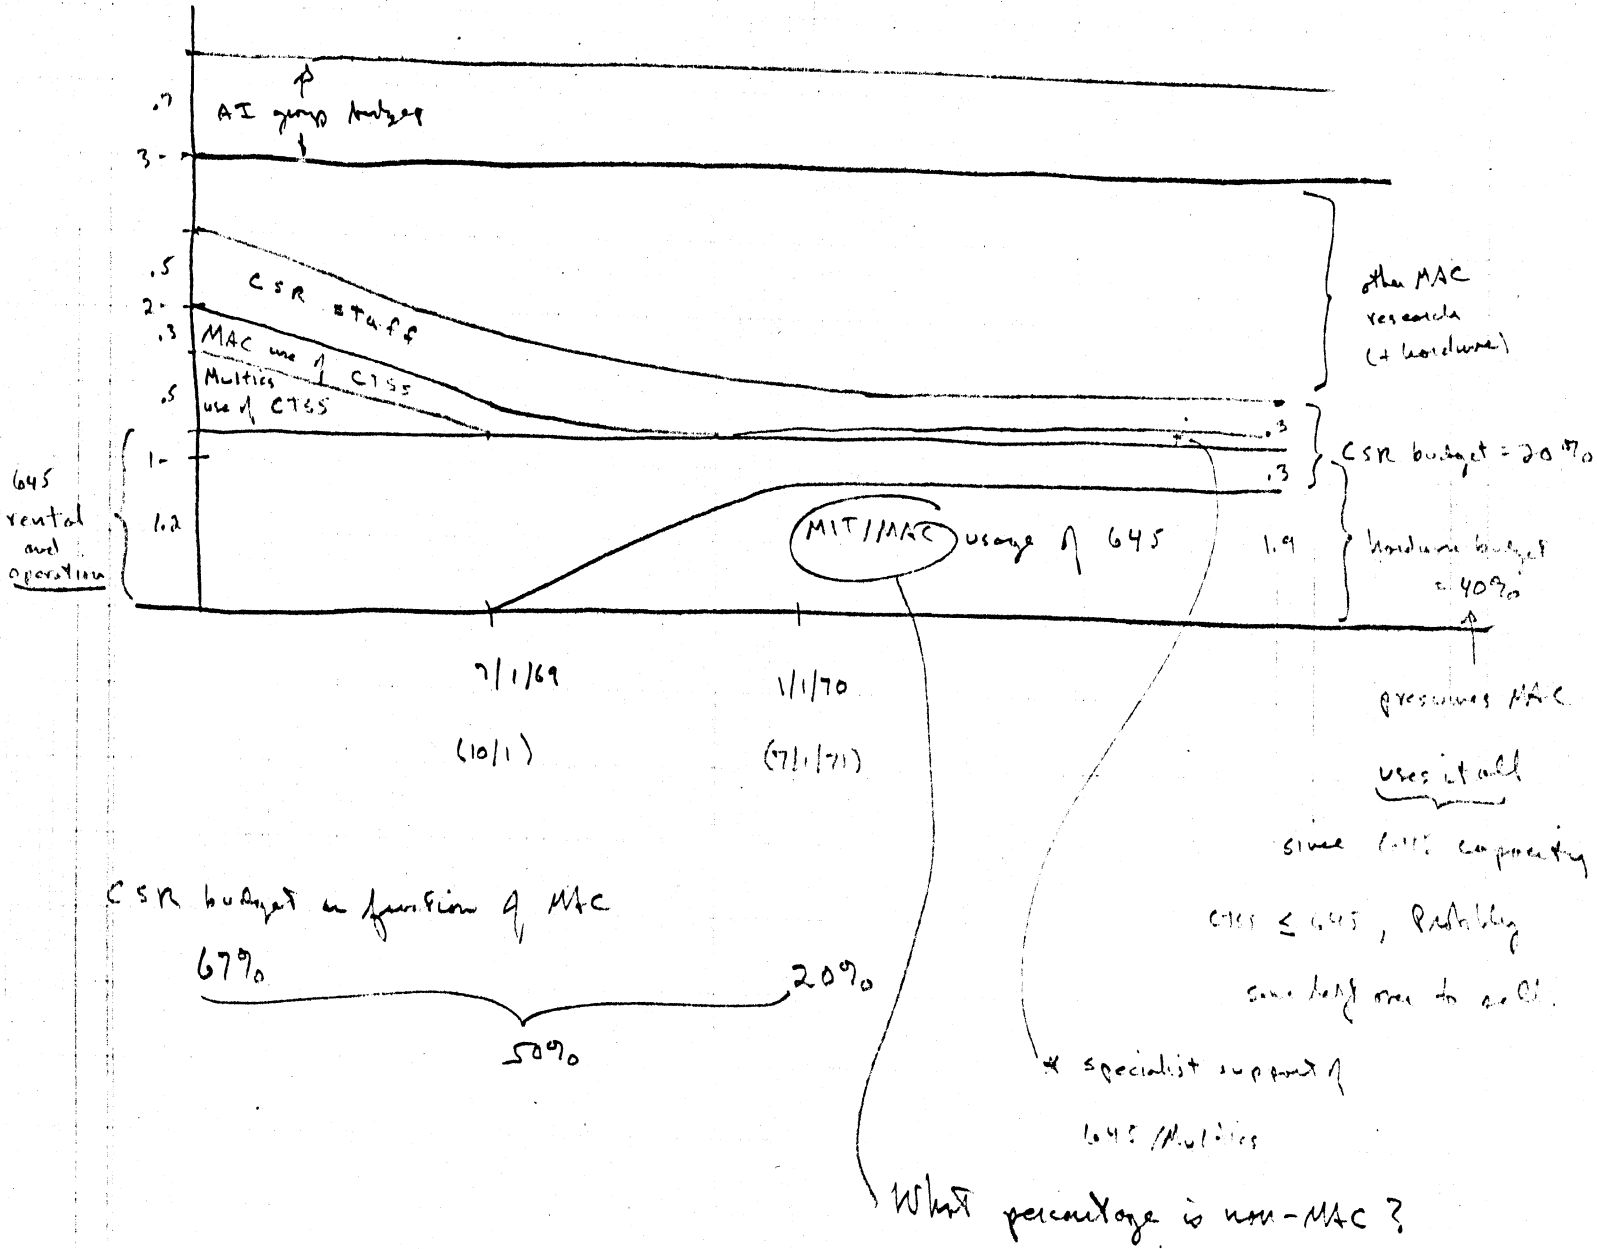 .7
AI group budget
3-
.5
CSR staff
2-
.3
MAC use of CTSS
Multics
use of CTSS
.5
1-
1.2
645
rental
and
operation
other MAC
research
(+ hardware)
.3
.3
CSR budget = 20%
MIT/MAC usage of 645
1.9
hardware budget
= 40%
7/1/69
1/1/70
(10/1)
(7/1/71)
presumes MAC
uses it all
since 645 capacity
CTSS ≤ 645, Probably
some left over to sell.
CSR budget as function of MAC
67%
20%
50%
* specialist support of
645/Multics
What percentage is non-MAC?